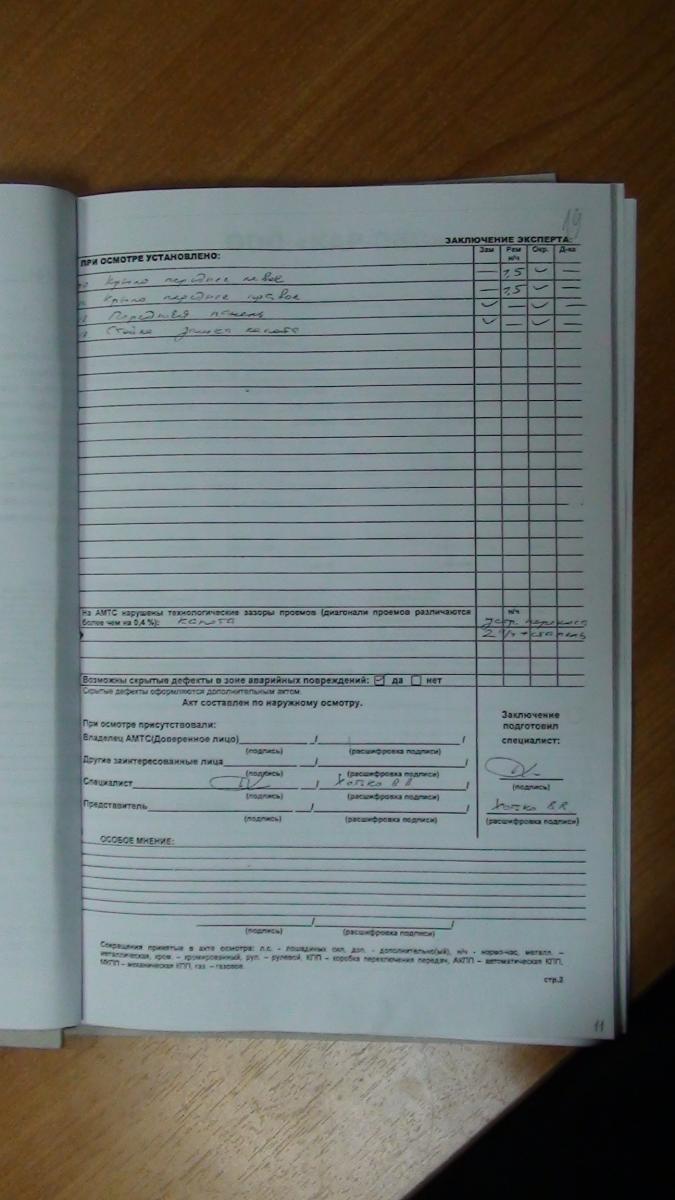 19
ЗАКЛЮЧЕНИЕ ЭКСПЕРТА:
ПРИ ОСМОТРЕ УСТАНОВЛЕНО:
Зам Рем Окр. Д-ка
н/ч
Крыло переднее левое — 1,5 ✓ —
Крыло переднее правое — 1,5 ✓ —
Передняя панель ✓ — ✓ —
Стойка замка капота ✓ — ✓ —
На АМТС нарушены технологические зазоры проемов (диагонали проемов различаются
более чем на 0,4 %): капота
н/ч
устр. перекоса
2 н/ч + стапель
Возможны скрытые дефекты в зоне аварийных повреждений: ☑ да ☐ нет
Скрытые дефекты оформляются дополнительным актом.
Акт составлен по наружному осмотру.
При осмотре присутствовали:
Владец АМТС(Доверенное лицо) / /
(подпись) (расшифровка подписи)
Другие заинтересованные лица / /
(подпись) (расшифровка подписи)
Специалист / В.В. /
(подпись) (расшифровка подписи)
Представитель / /
(подпись) (расшифровка подписи)
Заключение
подготовил
специалист:
(подпись)
В.В.
(расшифровка подписи)
ОСОБОЕ МНЕНИЕ:
/ /
(подпись) (расшифровка подписи)
Сокращения принятые в акте осмотра: л.с. - лошадиных сил, доп. - дополнительно(ый), н/ч - нормо-час, металл. –
металлическая, хром. – хромированный, рул. – рулевой, КПП – коробка переключения передач, АКПП – автоматическая КПП,
МКПП – механическая КПП, газ – газовое.
стр.2
11